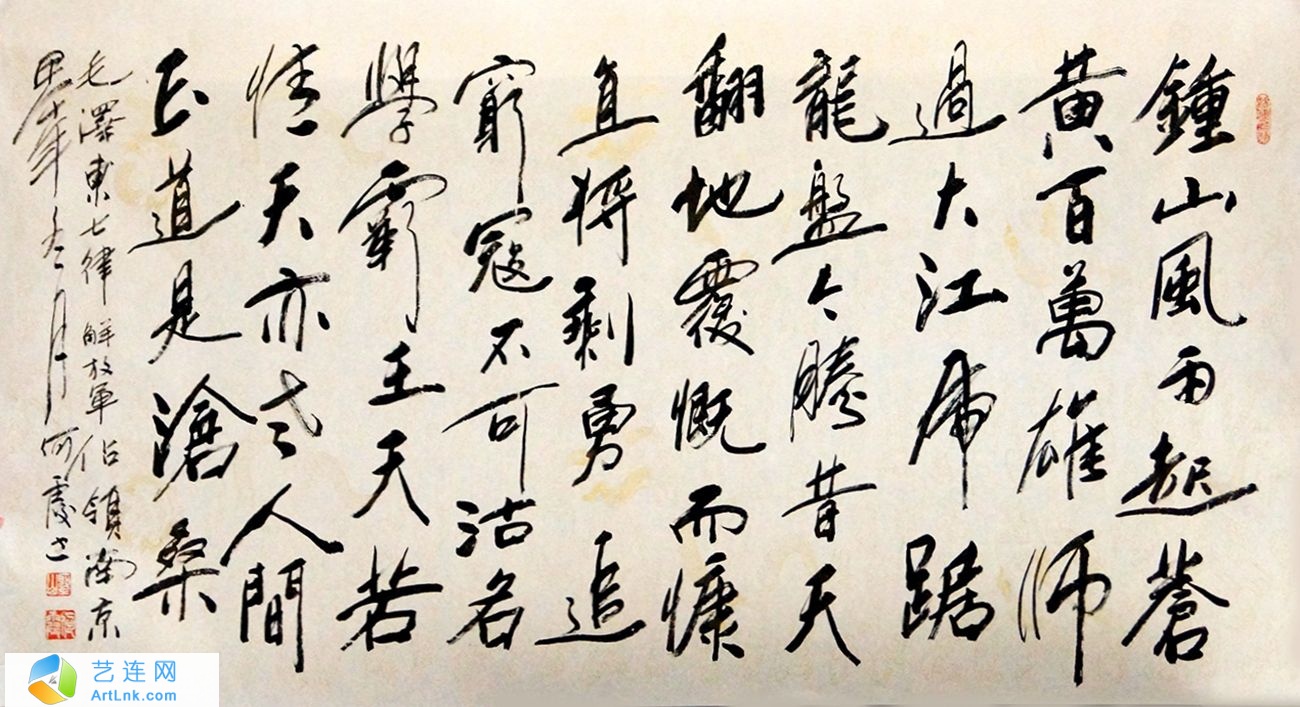 鍾山風雨起蒼
黃百萬雄師
過大江虎踞
龍盤今勝昔天
翻地覆慨而慷
宜將剩勇追
窮寇不可沽名
學霸王天若
情天亦老人間
正道是滄桑
毛澤東七律 解放軍佔領南京
年冬月 何 書
艺连网
ArtLnk.com